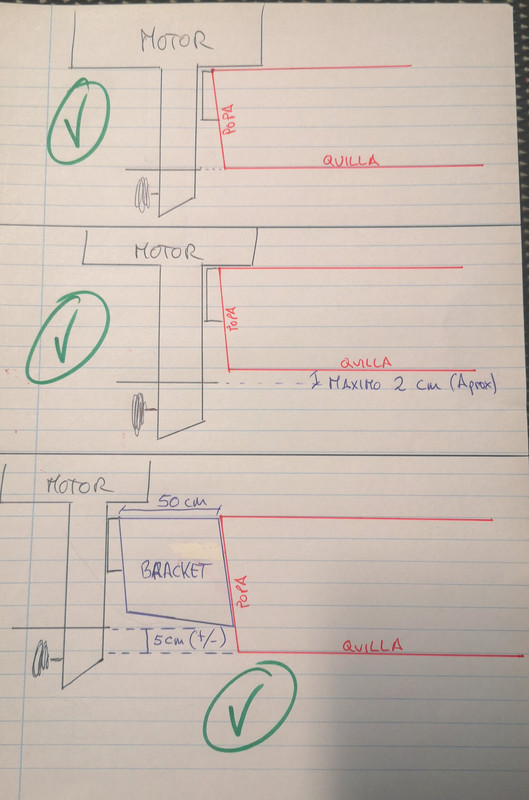 MOTOR
POPA
QUILLA
MOTOR
POPA
QUILLA
MAXIMO 2 cm (Aprox)
MOTOR
50 cm
BRACKET
POPA
5cm (+/-)
QUILLA